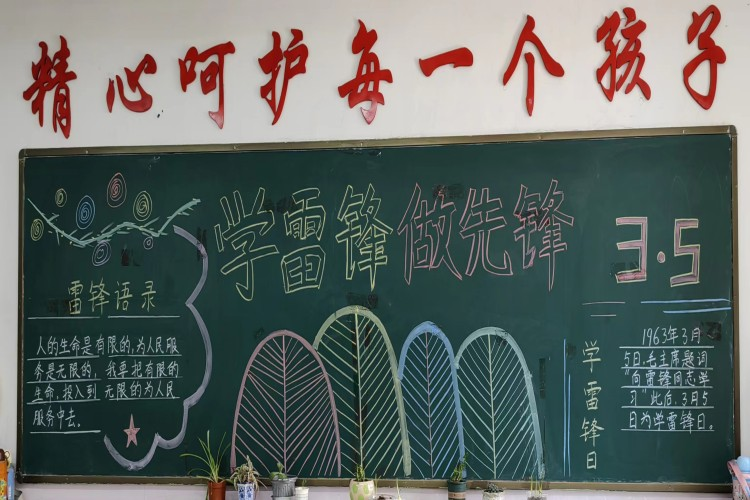 精心呵护每一个孩子
学雷锋做先锋
3.5
雷锋语录
人的生命是有限的,为人民服
务是无限的,我要把有限的
生命,投入到无限的为人民
服务中去。
学雷锋日
1963年3月
5日,毛主席题词
"向雷锋同志学
习"此后,3月5
日为学雷锋日。